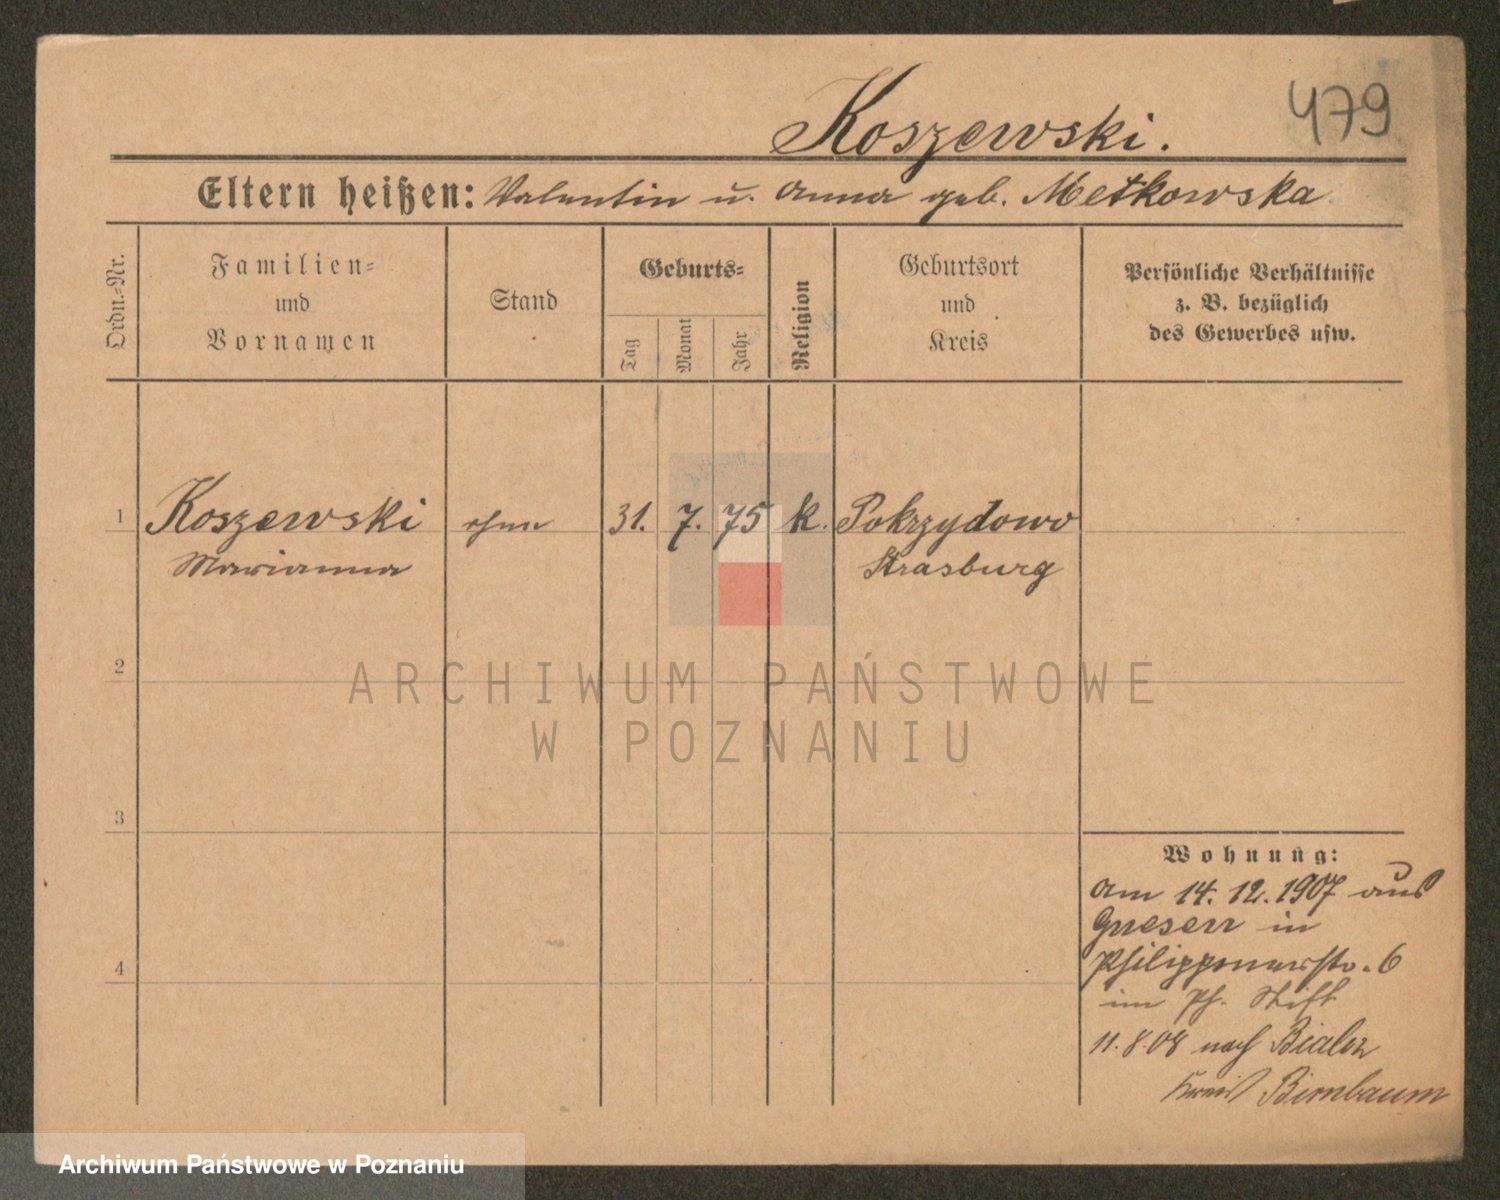 Koszewski. 479
Eltern heißen: Valentin u. Anna geb. Metkowska
Ordn.-Nr.
Familien-
und
Vornamen
Stand
Geburts-
Tag
Monat
Jahr
Religion
Geburtsort
und
Kreis
Persönliche Verhältnisse
z. B. bezüglich
des Gewerbes usw.
1 Koszewski ohne 31. 7. 75 k. Pokrzydowo
Marianna Strasburg
2
3
4
Wohnung:
Am 14. 12. 1907 aus
Gnesen in
Philipponerstr. 6
im Ph. Stift
11. 8. 08 nach
Kreis Birnbaum
ARCHIWUM PAŃSTWOWE
W POZNANIU
Archiwum Państwowe w Poznaniu